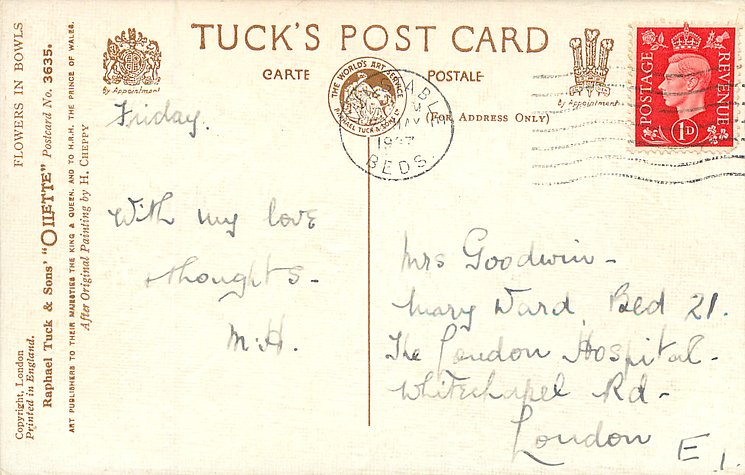 TUCK'S POST CARD
CARTE POSTALE
(FOR ADDRESS ONLY)
By Appointment
By Appointment
THE WORLD'S ART SERVICE
RAPHAEL TUCK & SONS LTD
ABLE
MAY
BEDS
POSTAGE
REVENUE
1D
Friday.
With my love
thoughts -
M.H.
Mrs Goodwin -
Mary Ward, Bed 21.
The London Hospital -
Whitechapel Rd -
London E1
FLOWERS IN BOWLS
Raphael Tuck & Sons' "OILETTE" Postcard No. 3635.
ART PUBLISHERS TO THEIR MAJESTIES THE KING & QUEEN, AND TO H.R.H. THE PRINCE OF WALES.
After Original Painting by H. CHEPPY
Copyright, London
Printed in England.